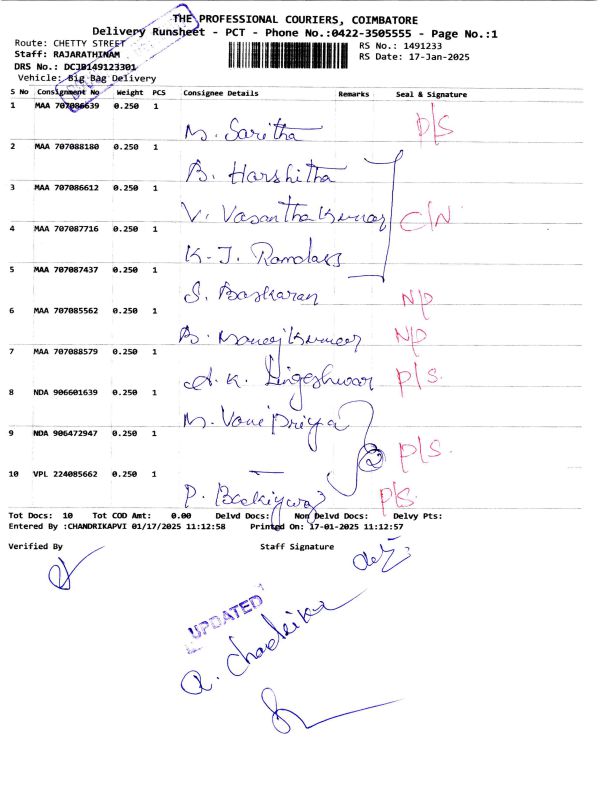 THE PROFESSIONAL COURIERS, COIMBATORE
Delivery Runsheet - PCT - Phone No.:0422-3505555 - Page No.:1
Route: CHETTY STREET
RS No.: 1491233
Staff: RAJARATHINAM
RS Date: 17-Jan-2025
DRS No.: DCJB149123301
Vehicle: Big Bag Delivery
S No Consignment No Weight PCS Consignee Details Remarks Seal & Signature
1 MAA 707086639 0.250 1
M. Saritha P/S
2 MAA 707088180 0.250 1
B. Harshitha
3 MAA 707086612 0.250 1
V. Vasantha Kumar C/N
4 MAA 707087716 0.250 1
K. J. Ramdass
5 MAA 707087437 0.250 1
S. Baskaran N/P
6 MAA 707085562 0.250 1
B. Manoj Kumar N/P
7 MAA 707088579 0.250 1
A. K. Lingeshwar P/S.
8 NDA 906601639 0.250 1
M. Vani Priya
9 NDA 906472947 0.250 1
② P/S.
10 VPL 224085662 0.250 1
P. P/S.
Tot Docs: 10 Tot COD Amt: 0.00 Delvd Docs: Non Delvd Docs: Delvy Pts:
Entered By :CHANDRIKAPVI 01/17/2025 11:12:58 Printed On: 17-01-2025 11:12:57
Verified By Staff Signature
UPDATED